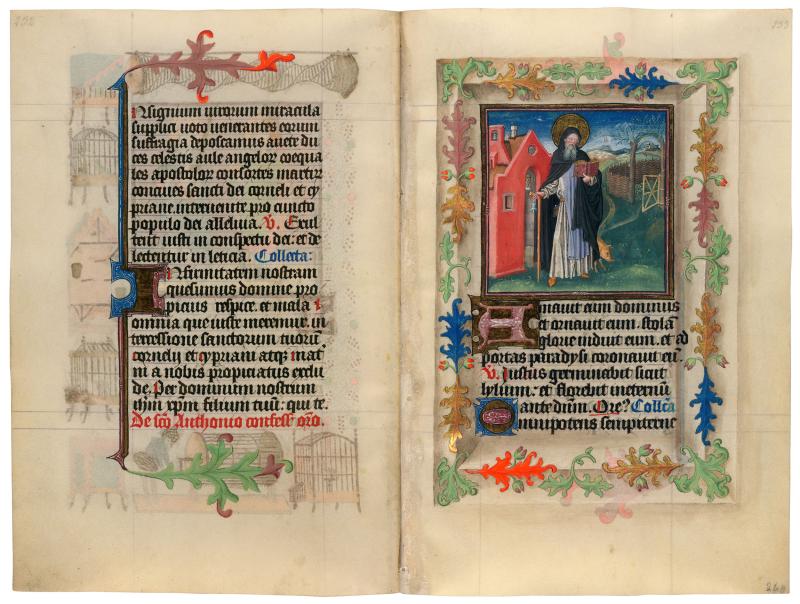 232
Insignium virorum miracula
supplici voto venerantes eorum
suffragia deposcamus avete du
ces celestis aule angelor coequa
les apostolor consortes martir
concives sancti dei corneli et cy
priane intervenite pro cuncto
populo dei alleluia. V. Exul
tent iusti in conspectu dei: et de
lectentur in leticia. Collecta:
Infirmitatem nostram
quesumus domine pro
picius respice. et mala
omnia que iuste meremur. in
tercessione sanctorum tuorum
cornelij et cypriani atqz
ni a nobis propiciatus exclu
de. Per dominum nostrum
ihm xpm filium tuū: qui te.
De sco Anthonio confess oro.
233
Amavit eum dominus
et ornavit eum. stolā
glorie induit eum. et ad
portas paradysi coronavit eū.
V. Justus germinebit sicut
lylium: et florebit in eternū
ante dnm. Ore? Collcā
Omnipotens sempiterne